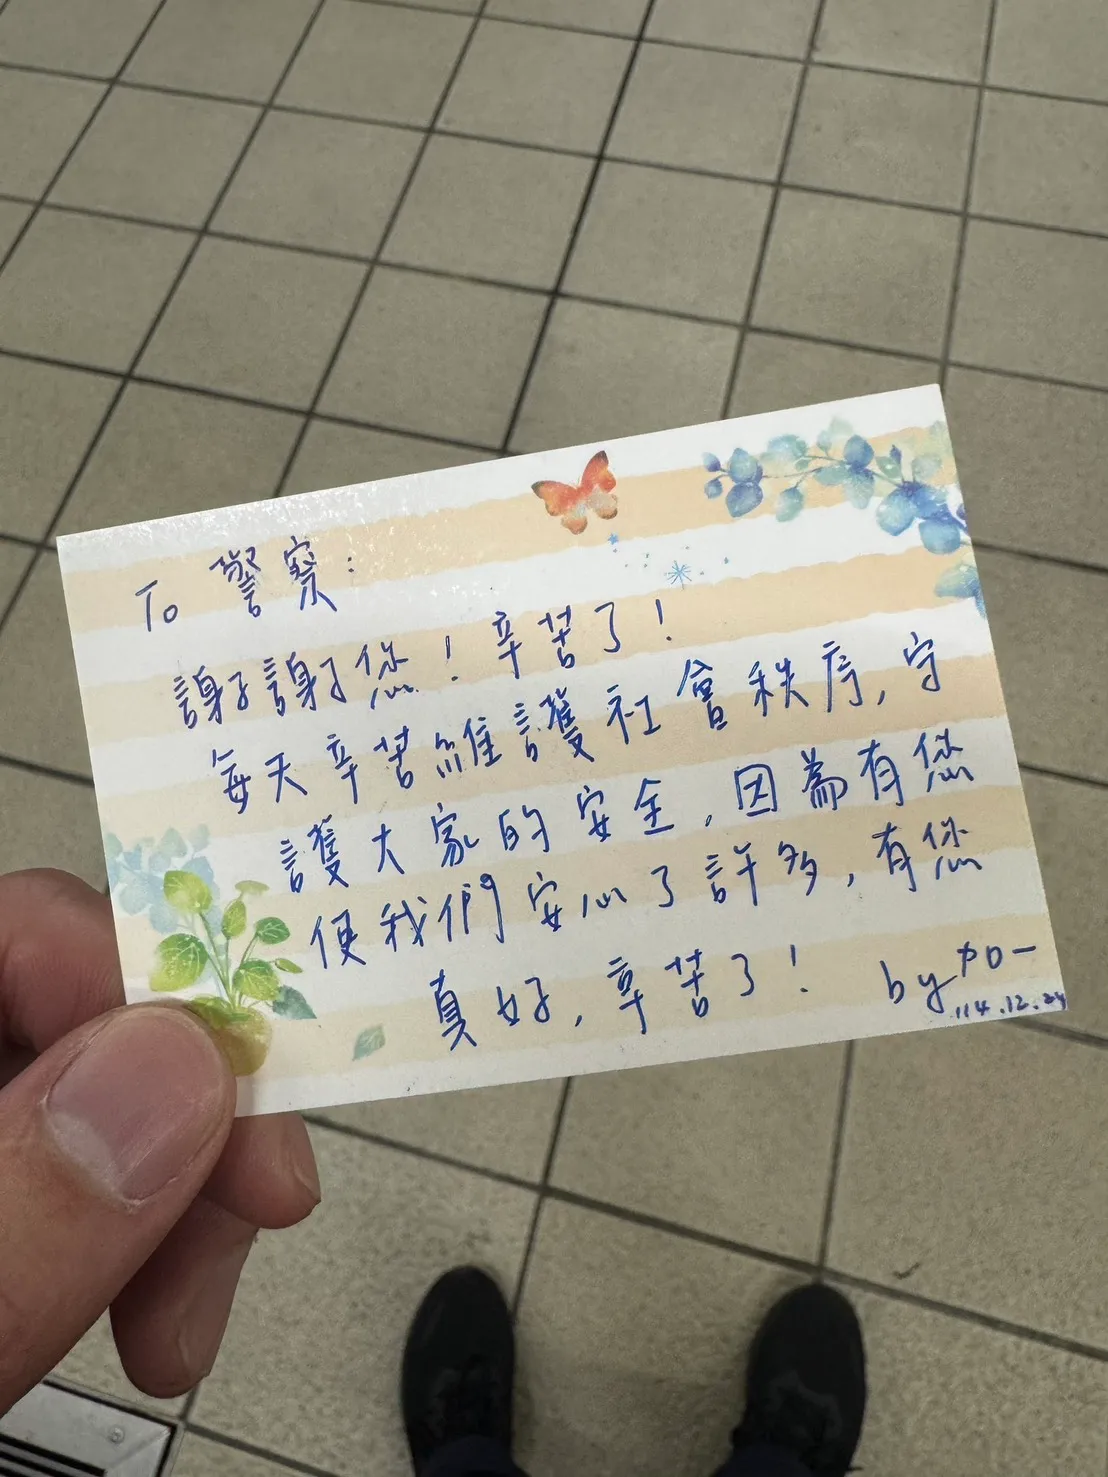 To 警察：
謝謝您！辛苦了！
每天辛苦維護社會秩序,守
護大家的安全,因為有您
使我們安心了許多,有您
真好,辛苦了！ by
114.12.24